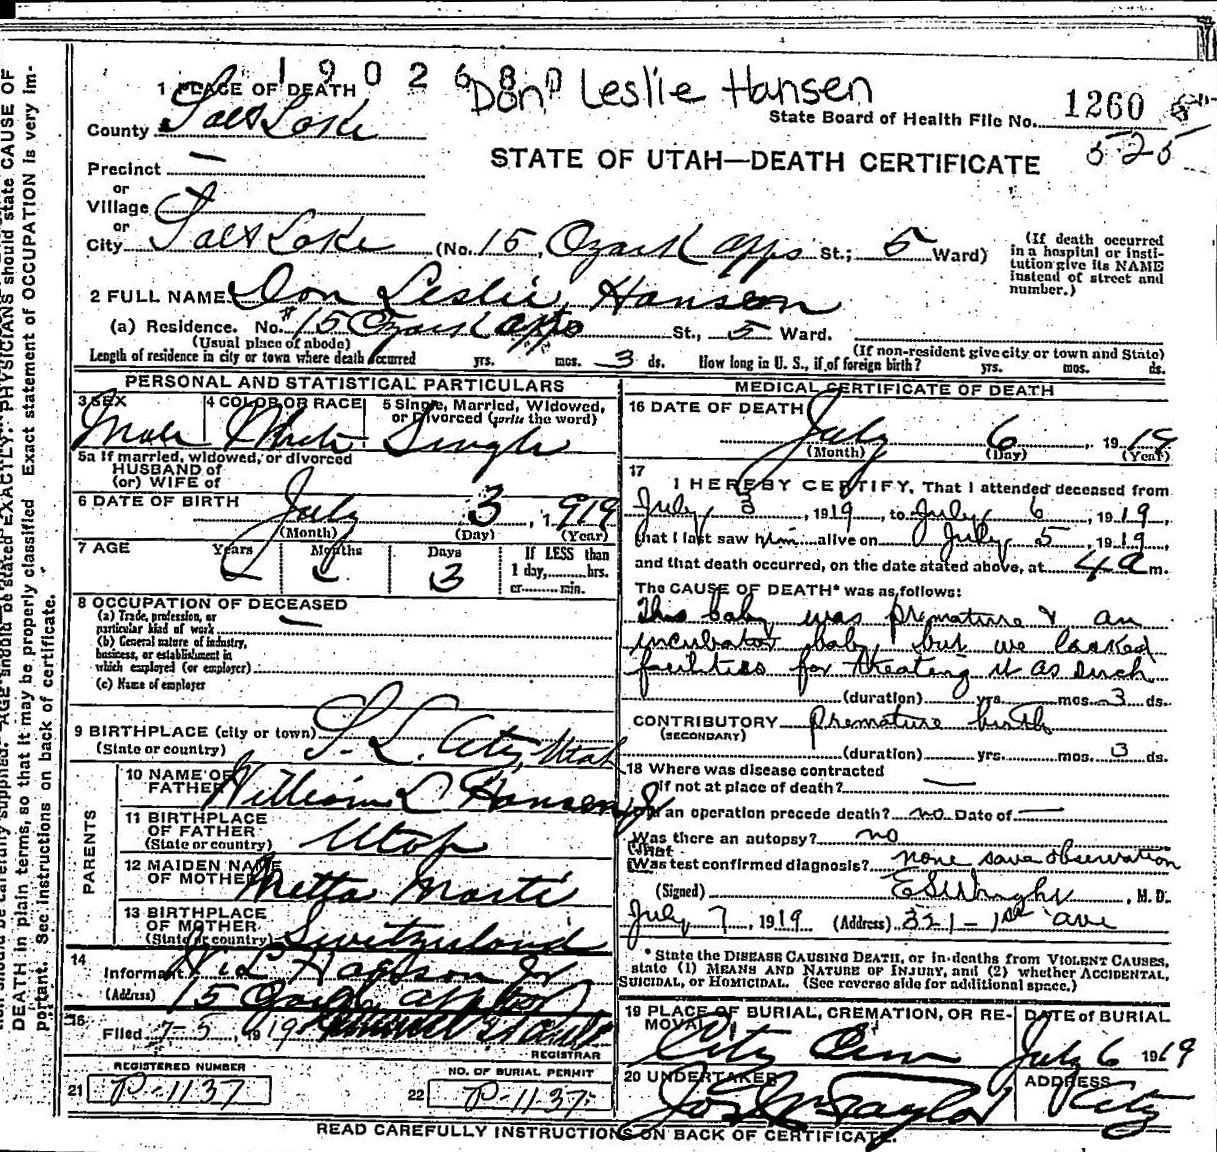 190268
Don Leslie Hansen
1 PLACE OF DEATH
State Board of Health File No. 1260
525
County Salt Lake
STATE OF UTAH—DEATH CERTIFICATE
Precinct —
or
Village
or
City Salt Lake (No. 15, Ozark apps St.; 5 Ward)
(If death occurred
in a hospital or insti-
tution give its NAME
instead of street and
number.)
2 FULL NAME Don Leslie Hansen
(a) Residence. No. #15 Ozark apps St., 5 Ward.
(Usual place of abode) (If non-resident give city or town and State)
Length of residence in city or town where death occurred yrs. mos. 3 ds. How long in U. S., if of foreign birth? yrs. mos. ds.
PERSONAL AND STATISTICAL PARTICULARS
3 SEX Male
4 COLOR OR RACE White
5 Single, Married, Widowed,
or Divorced (write the word)
Single
5a If married, widowed, or divorced
HUSBAND of
(or) WIFE of
6 DATE OF BIRTH July 3, 1919
(Month) (Day) (Year)
7 AGE Years Months Days 3
If LESS than
1 day, hrs.
or min.
8 OCCUPATION OF DECEASED —
(a) Trade, profession, or
particular kind of work
(b) General nature of industry,
business, or establishment in
which employed (or employer)
(c) Name of employer
9 BIRTHPLACE (city or town) S. L. City, Utah
(State or country)
PARENTS
10 NAME OF
FATHER William L Hansen Jr
11 BIRTHPLACE
OF FATHER
(State or country) Utah
12 MAIDEN NAME
OF MOTHER Metta Marti
13 BIRTHPLACE
OF MOTHER
(State or country) Switzerland
14
Informant Wm L Hansen Jr
(Address) 15 Ozark
15
Filed 7-5, 1919
REGISTRAR
REGISTERED NUMBER
21 P-1137
NO. OF BURIAL PERMIT
22 P-1137
MEDICAL CERTIFICATE OF DEATH
16 DATE OF DEATH
July 6, 1919
(Month) (Day) (Year)
17
I HEREBY CERTIFY, That I attended deceased from
July 3, 1919, to July 6, 1919,
that I last saw him alive on July 5, 1919,
and that death occurred, on the date stated above, at 4 a m.
The CAUSE OF DEATH* was as follows:
This baby was premature & an
incubator baby, but we lacked
facilities for treating it as such
(duration) yrs. mos. 3 ds.
CONTRIBUTORY premature birth
(SECONDARY)
(duration) yrs. mos. 3 ds.
18 Where was disease contracted
if not at place of death? —
Did an operation precede death? no Date of —
Was there an autopsy? no
What
Was test confirmed diagnosis? none save observation
(Signed) E S Wright, M. D.
July 7, 1919 (Address) 321 - 1st ave
* State the DISEASE CAUSING DEATH, or in deaths from VIOLENT CAUSES,
state (1) MEANS AND NATURE OF INJURY, and (2) whether ACCIDENTAL,
SUICIDAL, or HOMICIDAL. (See reverse side for additional space.)
19 PLACE OF BURIAL, CREMATION, OR RE-
MOVAL
City Cem
DATE of BURIAL
July 6 1919
20 UNDERTAKER
Jos Wm Taylor
ADDRESS
City
READ CAREFULLY INSTRUCTIONS ON BACK OF CERTIFICATE.
AGE should be stated EXACTLY. PHYSICIANS should state CAUSE OF
DEATH in plain terms, so that it may be properly classified Exact statement of OCCUPATION is very im-
portant. See instructions on back of certificate.